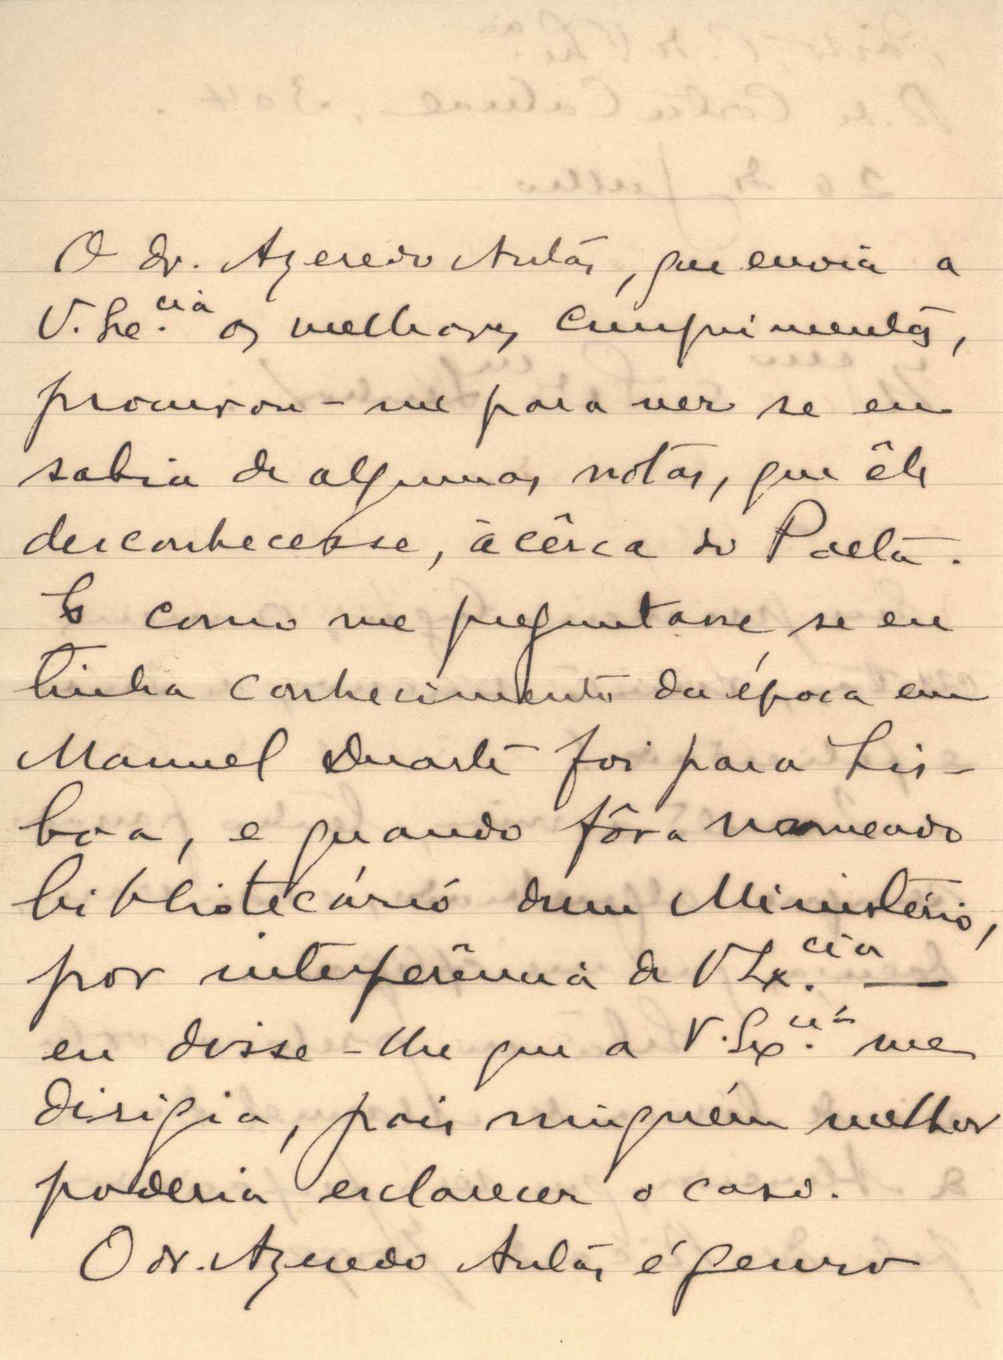 O dr. Azeredo Antas, que envia a
V. Exc.cia os melhores cumprimentos,
procurou-me para ver se eu
sabia de algumas notas, que êle
desconhecesse, àcêrca do Poeta.
E como me preguntasse, se eu
tinha conhecimento da época em
Manuel Duarte foi para Lis-
boa, e quando fôra nomeado
bibliotecário dum Ministério,
por interferência de V Ex.cia —
eu disse-lhe que a V. Ex.cia me
dirigia, pois ninguém melhor
poderia esclarecer o caso.
O dr. Azeredo Antas é genro